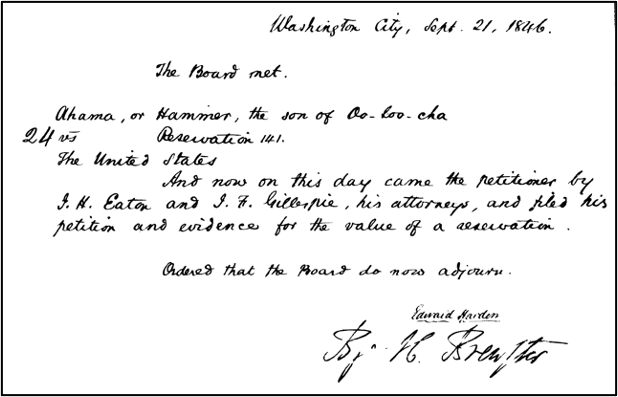 Washington City, Sept. 21, 1846.
The Board met.
Ahama, or Hammer, the son of Oo-loo-cha
24 vs Reservation 141.
The United States
And now on this day came the petitioner by
J. H. Eaton and J. F. Gillespie, his attorneys, and filed his
petition and evidence for the value of a reservation.
Ordered that the Board do now adjourn.
Edward Harden
Bj. H. Brewster